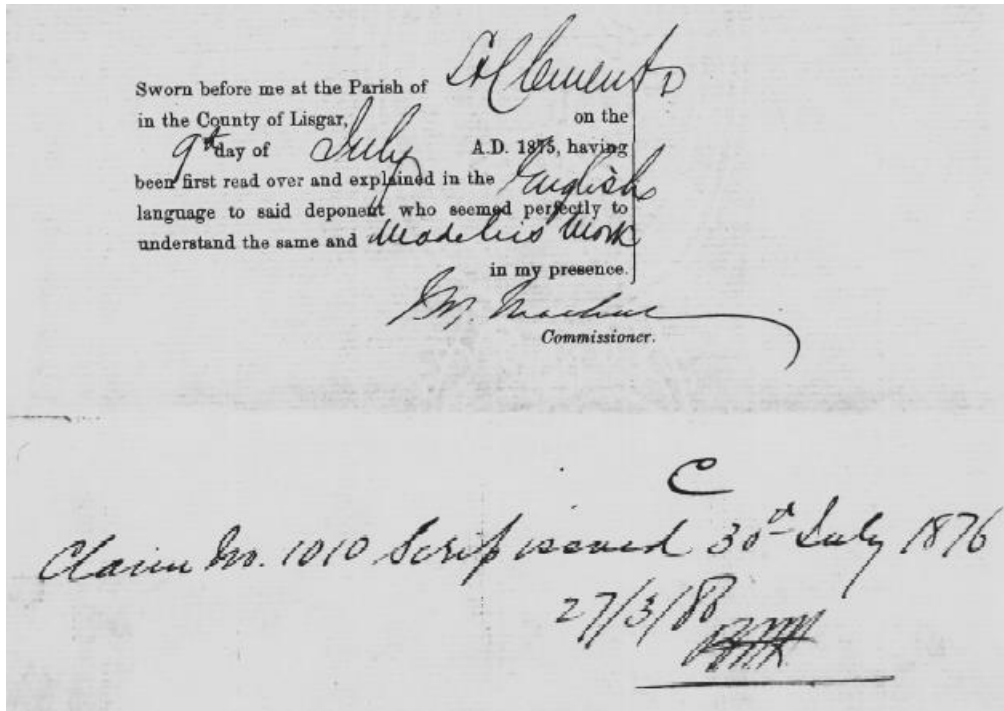 Sworn before me at the Parish of St Clements
in the County of Lisgar, on the
9th day of July A.D. 1875, having
been first read over and explained in the English
language to said deponent who seemed perfectly to
understand the same and Made his Mark
in my presence.
Commissioner.
C
Claim No. 1010 Scrip issued 30th July 1876
27/3/88